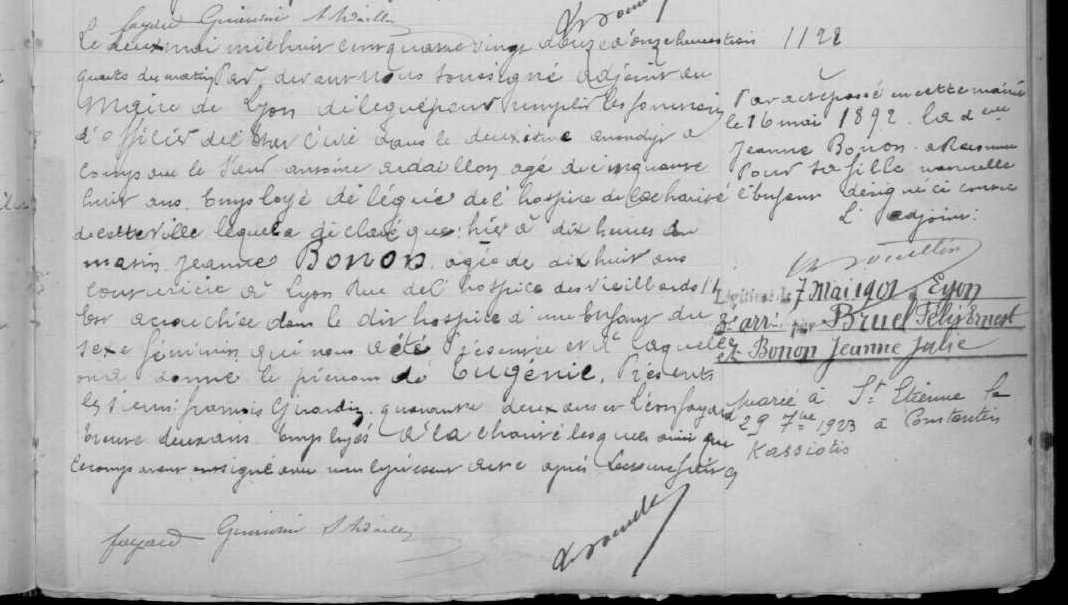 fayard Guirimi
Le deux mai mil huit cent quatre vingt douze à onze heures trois
quarts du matin Par devant nous soussigné adjoint au
Maire de Lyon délégué pour remplir les fonctions
d'officier de l'Etat Civil dans le deuxième arrondist a
comparu le sieur antoine ardaillon agé de cinquante
huit ans Employé délégué de l'hospice de la charité
de cette ville lequel a déclaré que: hier à dix heures du
matin Jeanne BONON agée de dix huit ans
couturière à Lyon Rue de l'hospice des vieillards 14
Est accouchée dans le dit hospice d'une Enfant du
sexe féminin qui nous a été présentée et à laquelle
on a donné le prénom de Eugénie. Présents
les sieurs francois Girardin quarante deux ans et Léon fayard
trente deux ans Employés à la charité lesquels ainsi que
le comparant ont signé avec nous le présent acte après lecture faite
fayard
1122
Par acte passé en cette mairie
le 16 mai 1892. la dene
Jeanne Bonon a Reconnu
Pour sa fille naturelle
l'Enfant désigné ci contre
L'adjoint:
Légitimée le 7 Mai 1901 à Lyon
3e arrt par Bruel Félix Ernest
et Bonon Jeanne Julie
Mariée à St Etienne le
29 7bre 1923 à Constantin
Kassiotis